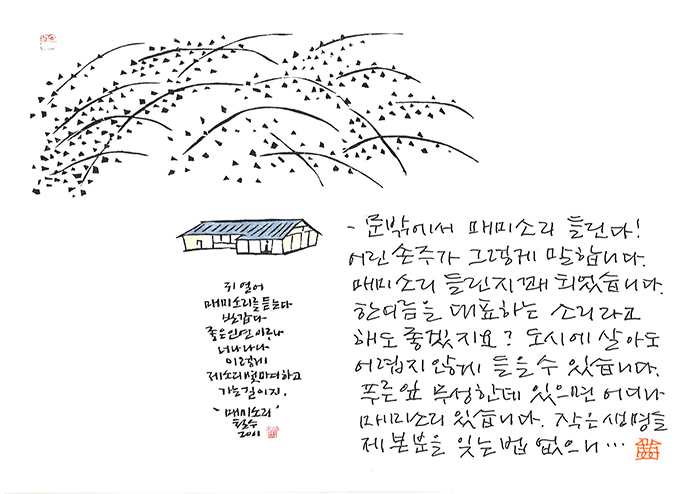 귀 열어
매미소리를 듣는다
반갑다
좋은 인연 이루나
너나 나나
이렇게
제소리껏 마여하고
가는 길이지.
- '매미소리'
철수
2011
- 문밖에서 매미소리 들린다!
어린 손주가 그렇게 말합니다.
매미소리 들린지 꽤 되었습니다.
한여름을 대표하는 소리라고
해도 좋겠지요? 도시에 살아도
어렵지 않게 들을 수 있습니다.
푸른잎 무성한데 있으면 어디나
매미소리 있습니다. 작은 생명들
제 본분을 잊는 법 없으니…